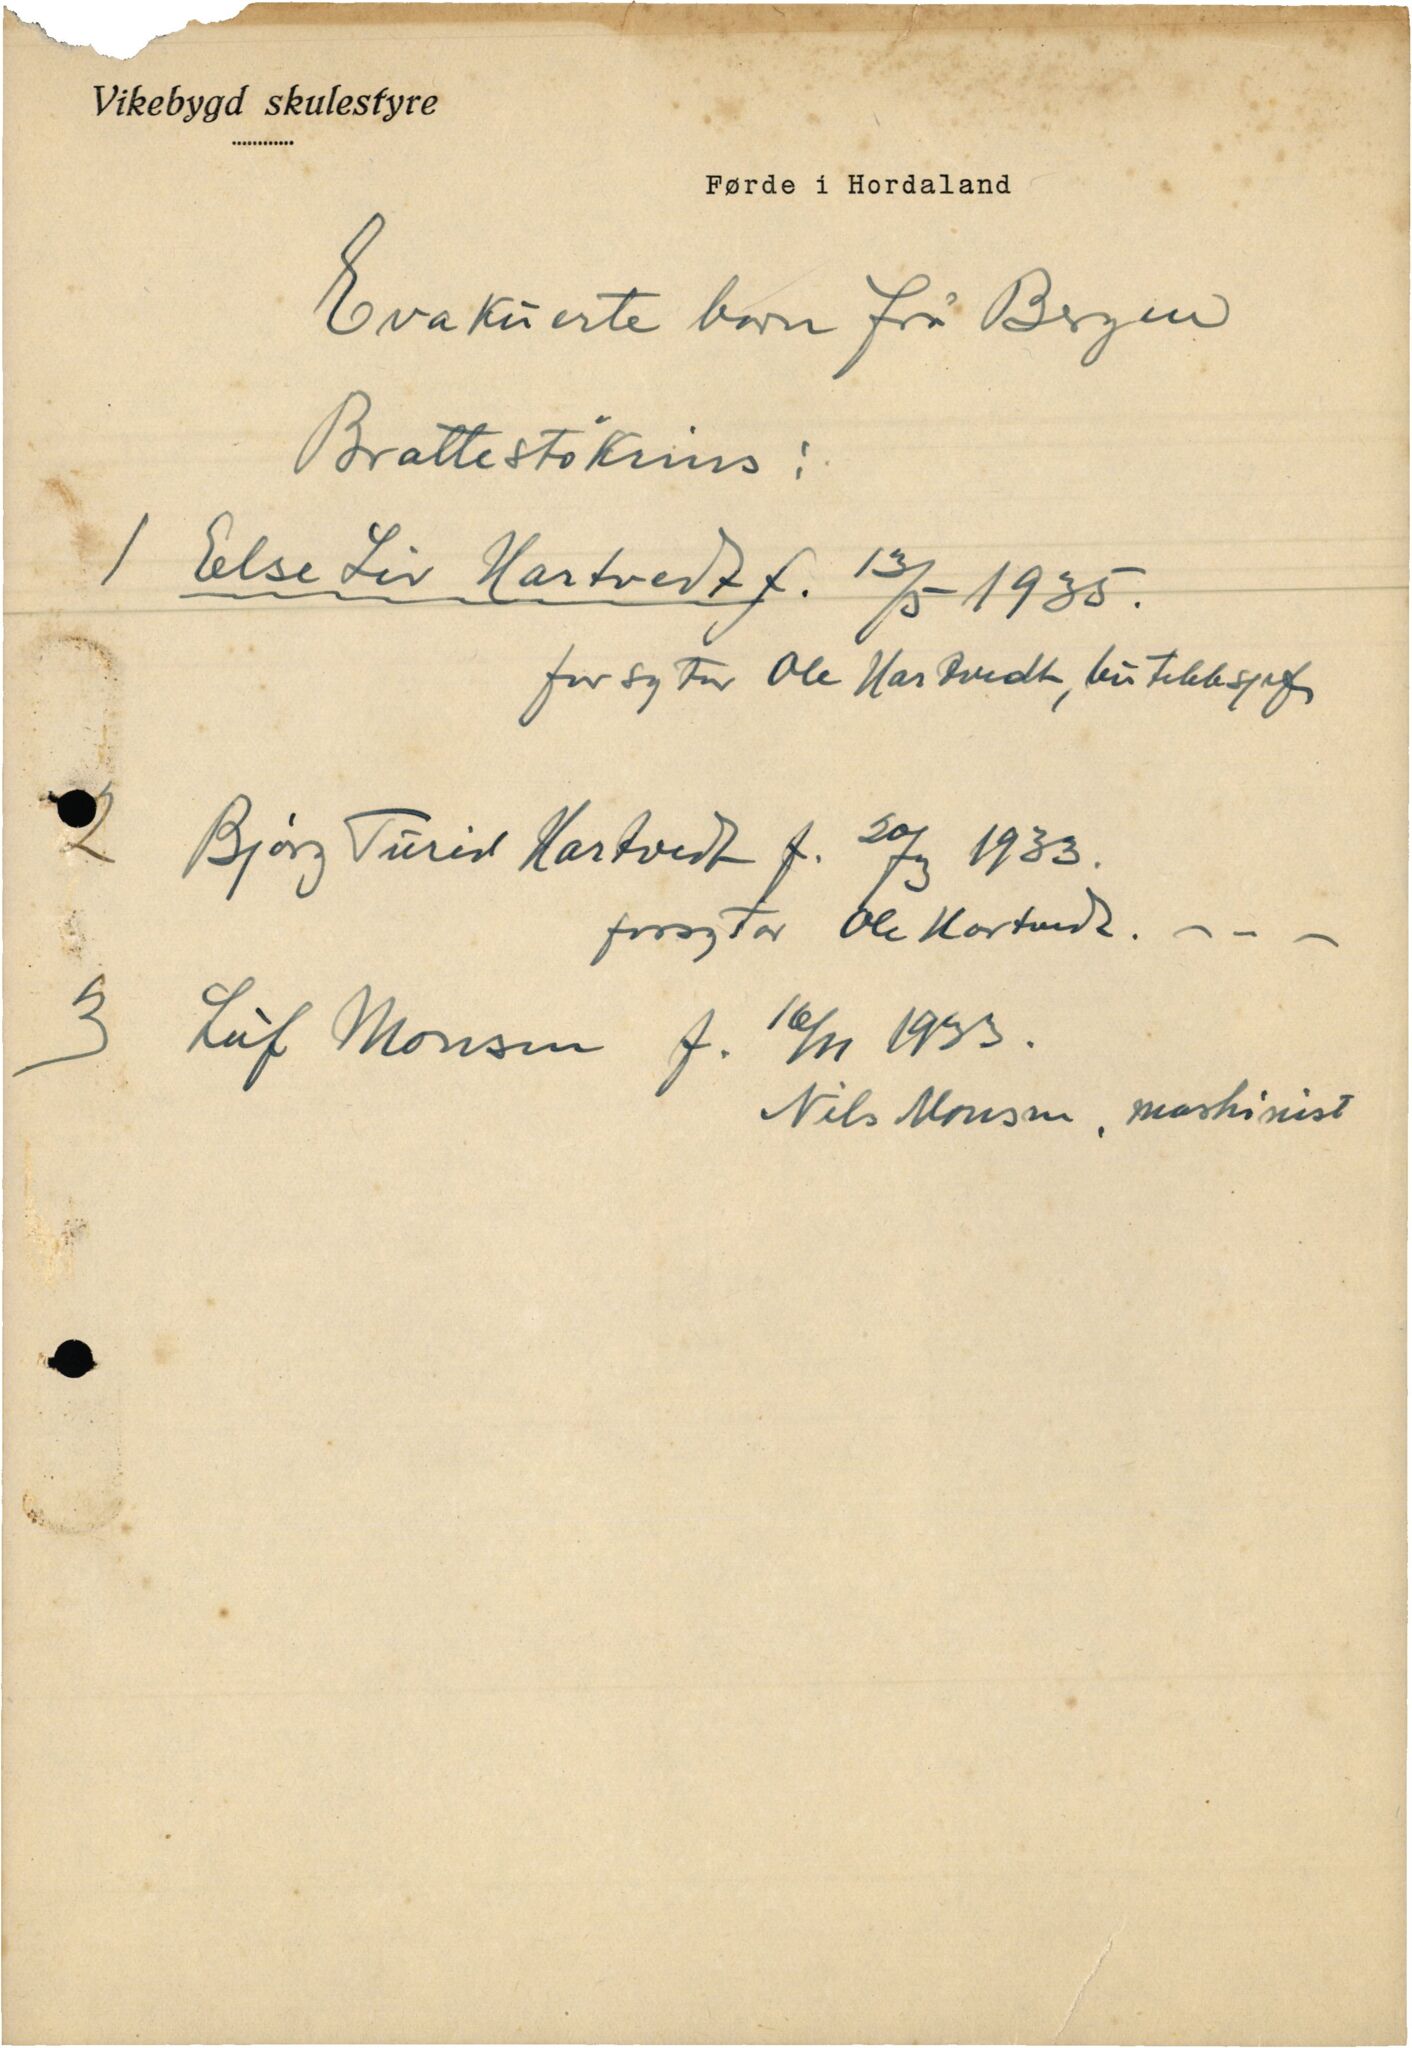 Vikebygd skulestyre
Førde i Hordaland
Evakuerte born frå Bergen
Brattestö Krins :
1 Else Liv Hartvedt f. 13/5 1935.
forsytar Ole Hartvedt, butikksjef
2 Bjørg Turid Hartvedt f. 1933.
forsytar Ole Hartvedt. - - -
3 Leif Monsen f. 16/11 1933.
Nils Monsen, maskinist